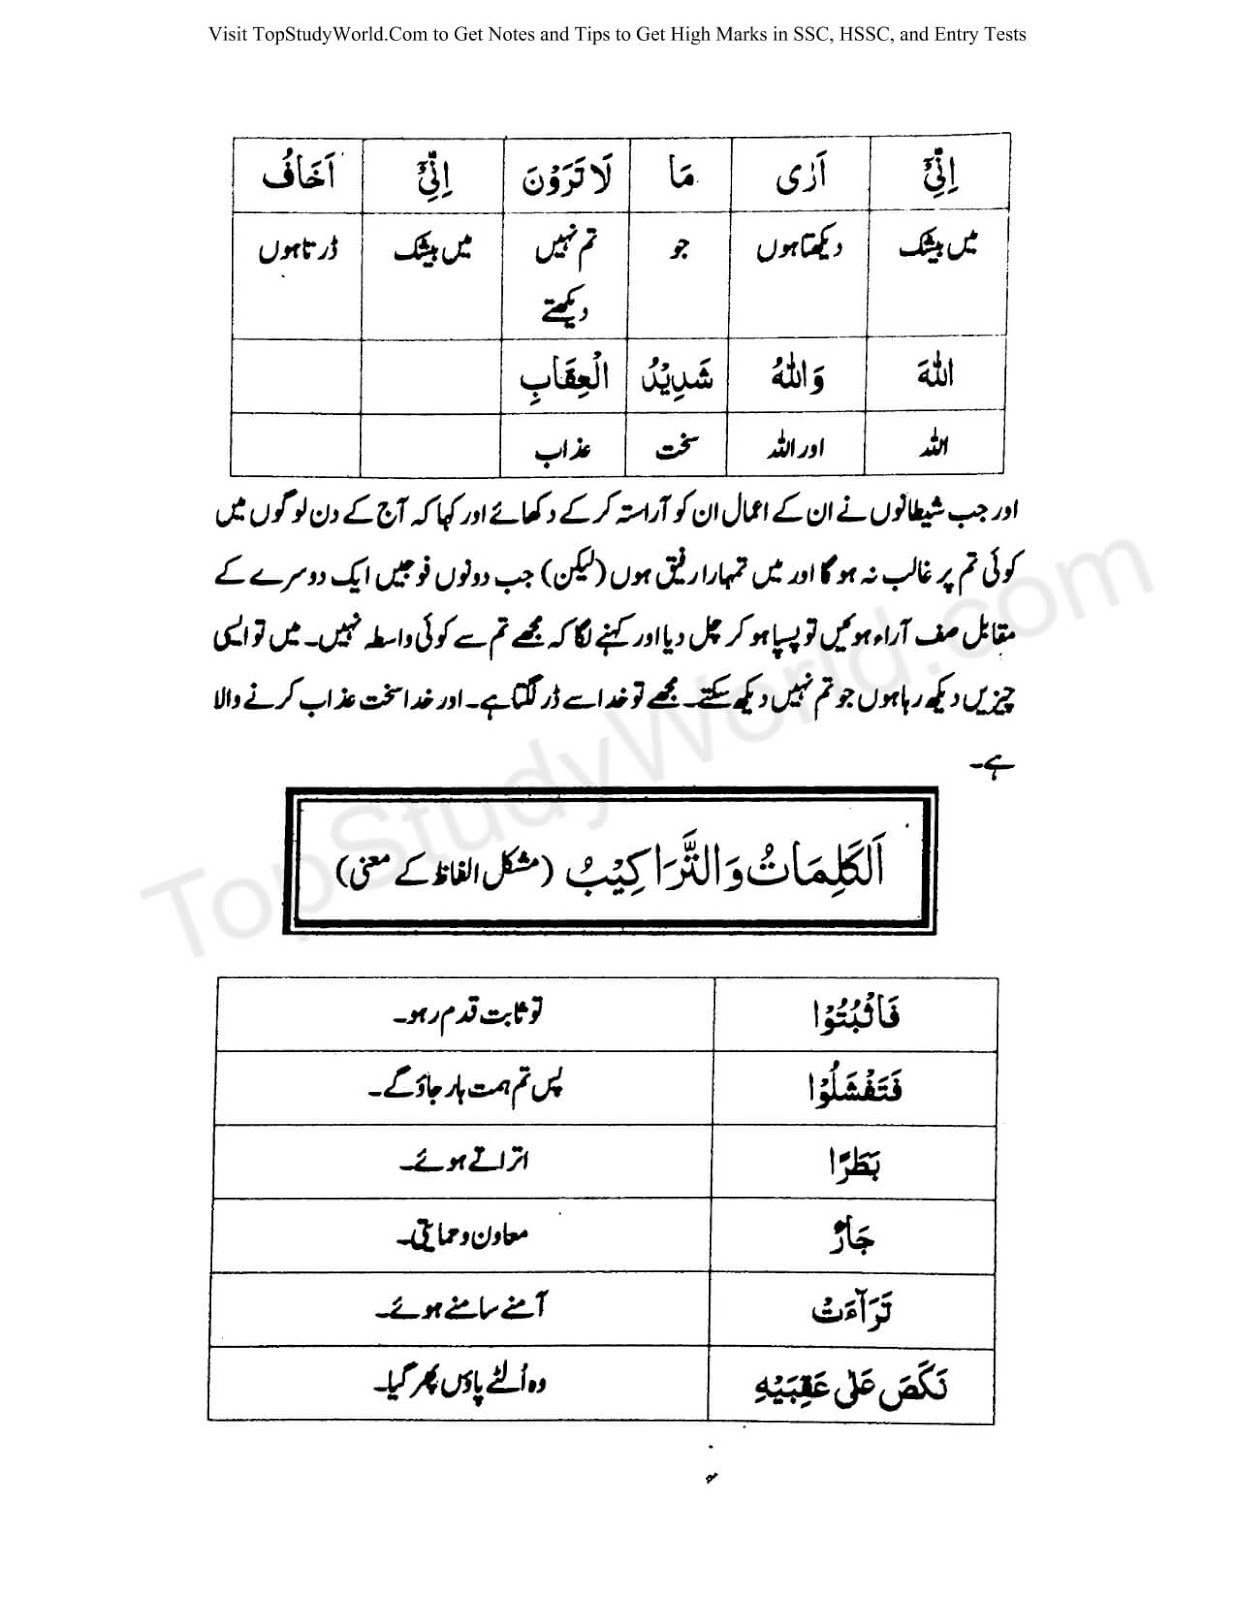 Visit TopStudyWorld.Com to Get Notes and Tips to Get High Marks in SSC, HSSC, and Entry Tests
اِنِّیْۤ اَرٰی مَا لَا تَرَوْنَ اِنِّیْۤ اَخَافُ
میں بیشک دیکھتا ہوں جو تم نہیں میں بیشک ڈرتا ہوں
دیکھتے
اللّٰهَ وَاللّٰهُ شَدِیْدُ الْعِقَابِ
اللہ اور اللہ سخت عذاب
اور جب شیطانوں نے ان کے اعمال ان کو آراستہ کر کے دکھائے اور کہا کہ آج کے دن لوگوں میں
کوئی تم پر غالب نہ ہوگا اور میں تمہارا رفیق ہوں (لیکن) جب دونوں فوجیں ایک دوسرے کے
مقابل صف آراء ہوئیں تو پسپا ہو کر چل دیا اور کہنے لگا کہ مجھے تم سے کوئی واسطہ نہیں۔ میں تو ایسی
چیزیں دیکھ رہا ہوں جو تم نہیں دیکھ سکتے۔ مجھے تو خدا سے ڈر لگتا ہے۔ اور خدا سخت عذاب کرنے والا
ہے۔
اَلْكَلِمَاتُ وَالتَّرَاكِیْبُ (مشکل الفاظ کے معنی)
فَاثْبُتُوْا تو ثابت قدم رہو۔
فَتَفْشَلُوْا پس تم ہمت ہار جاؤ گے۔
بَطَرًا اتراتے ہوئے۔
جَارٌ معاون و حمایتی۔
تَرَآءَتْ آمنے سامنے ہوئے۔
نَكَصَ عَلٰی عَقِبَیْهِ وہ اُلٹے پاؤں پھر گیا۔
TopStudyWorld.com